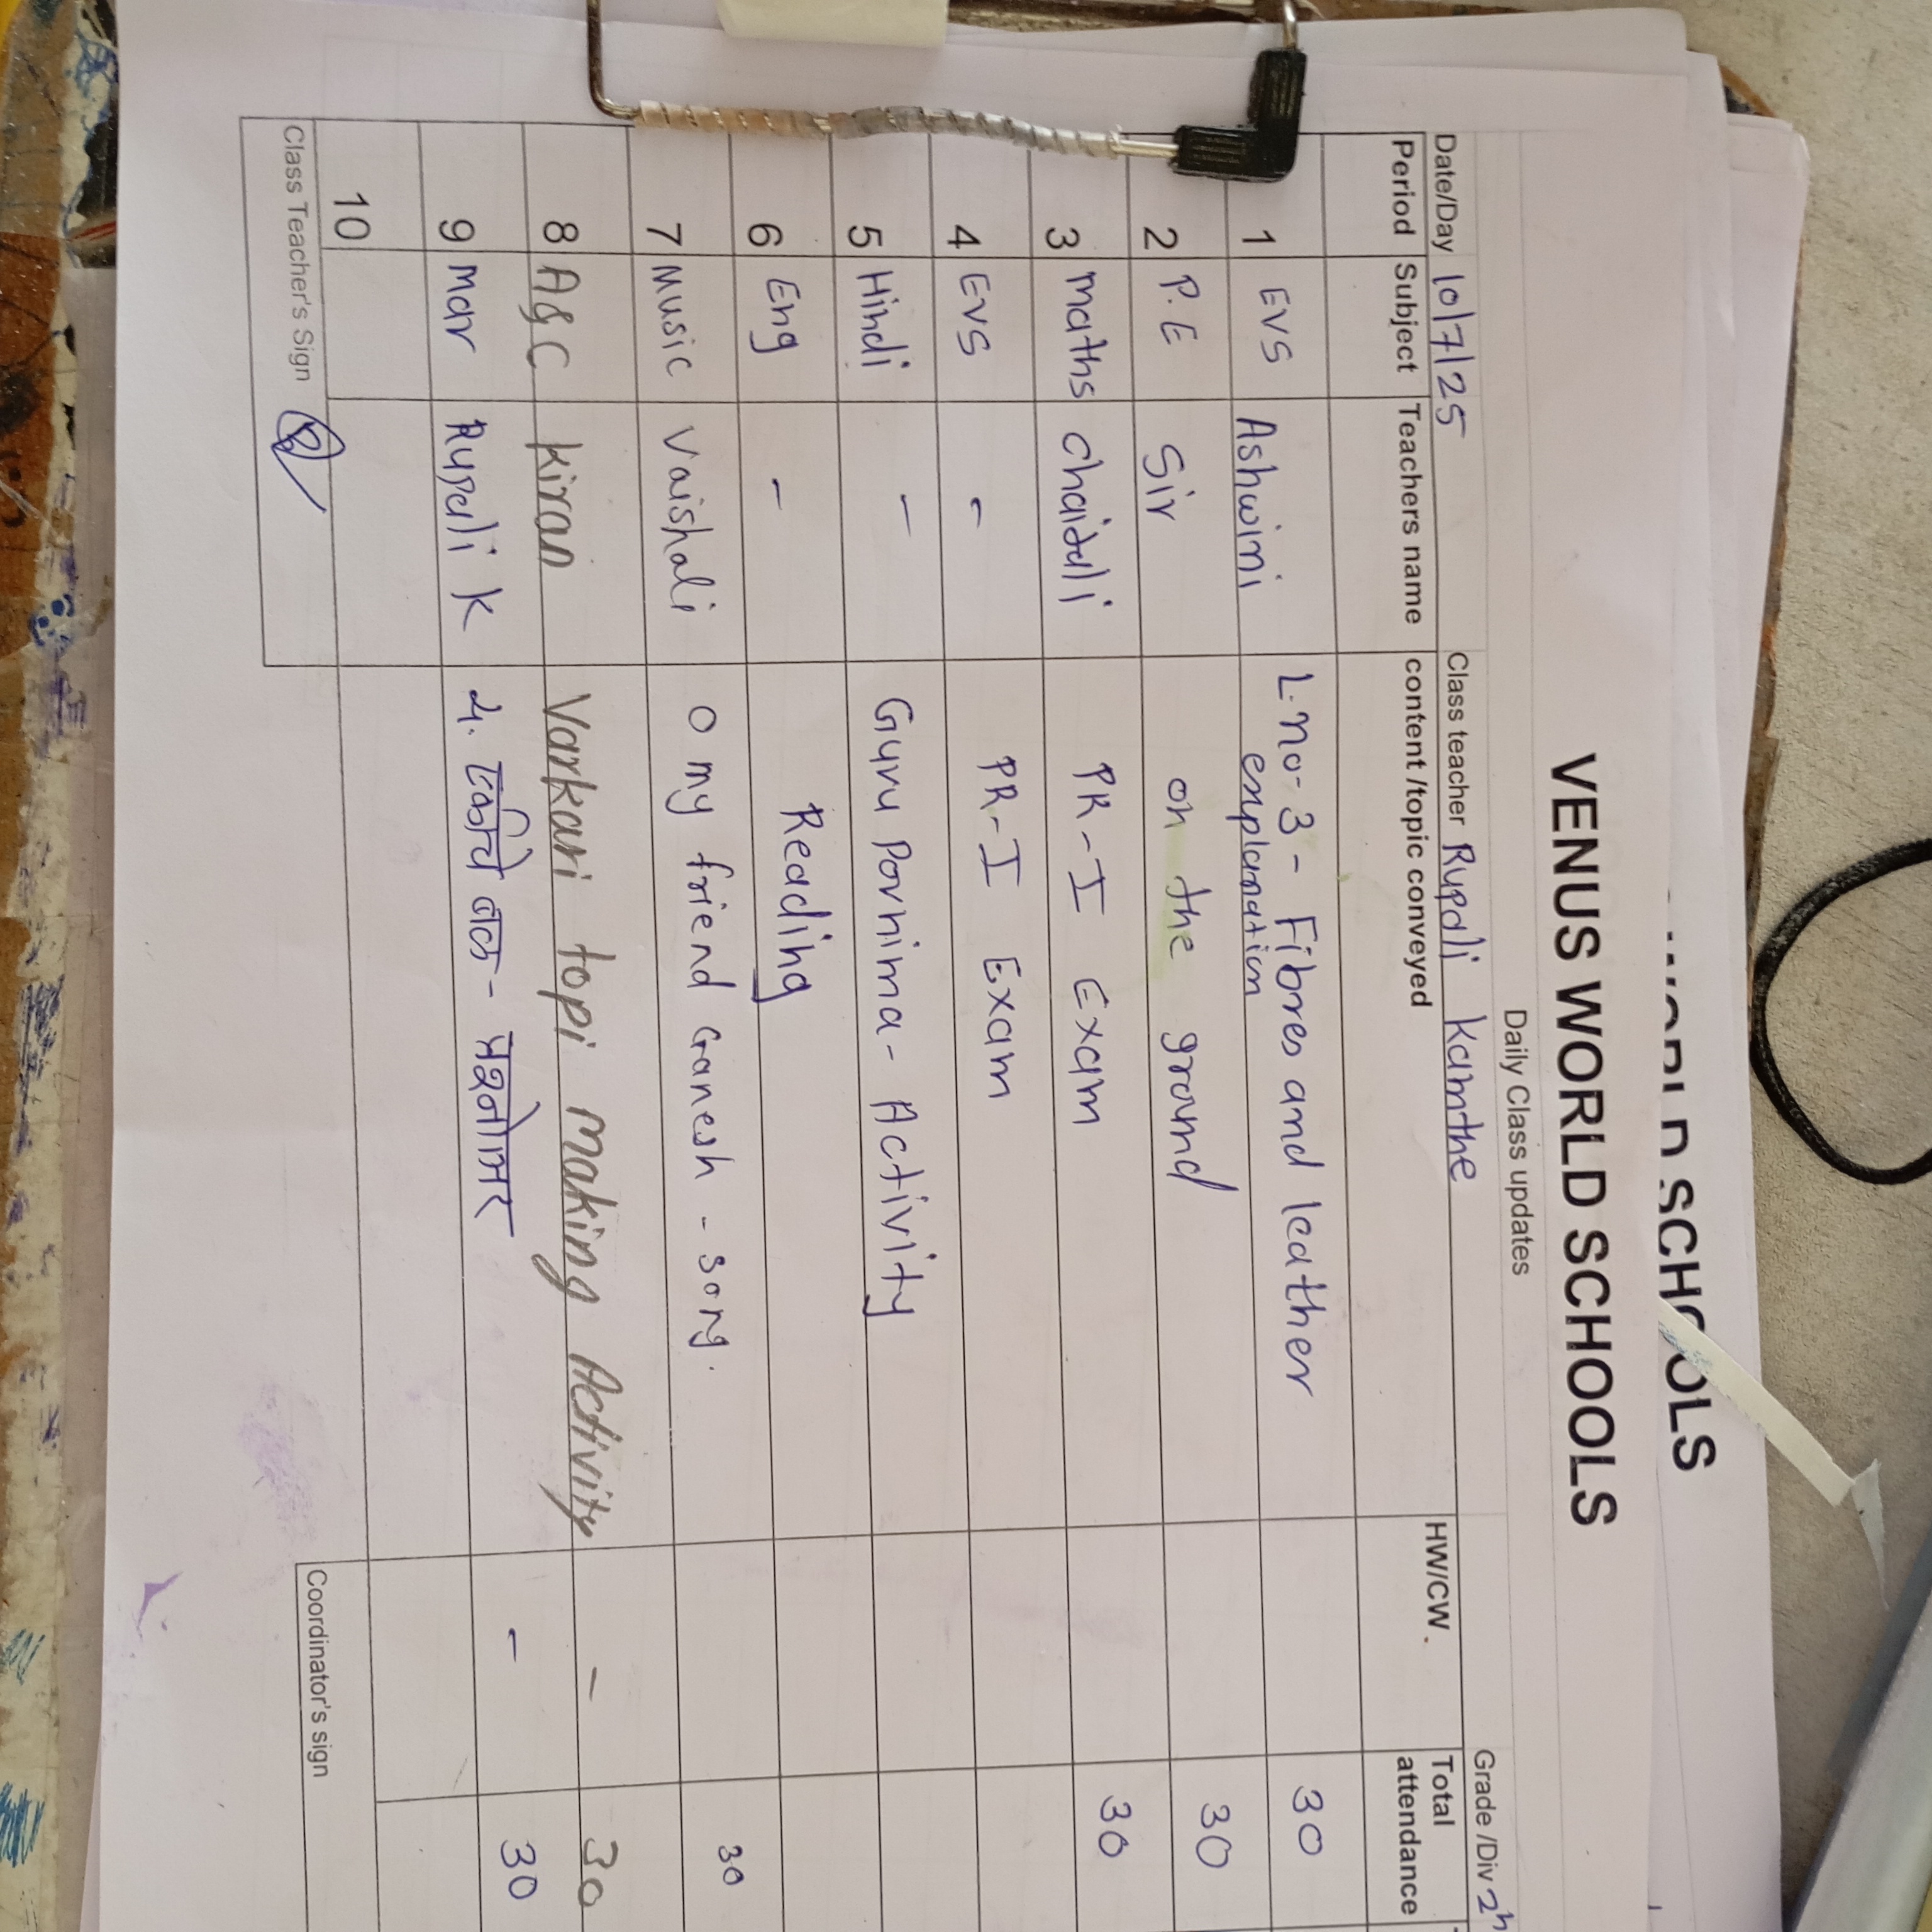 WORLD SCHOOLS
VENUS WORLD SCHOOLS
Daily Class updates
Date/Day 10/7/25 Class teacher Rupali Kamthe Grade /Div 2
Period Subject Teachers name content /topic conveyed HW/CW. Total attendance
1 EVS Ashwini L.no-3- Fibres and leather
explanation 30
2 P.E Sir on the ground 30
3 maths chaitali PR-I Exam 30
4 EVS - PR-I Exam
5 Hindi - Guru Pornima- Activity
6 Eng - Reading
7 Music Vaishali O my friend Ganesh - song. 30
8 A&C kiran Varkari topi making Activity - 30
9 Mar Rupali K - 30
10
Class Teacher's Sign Coordinator's sign